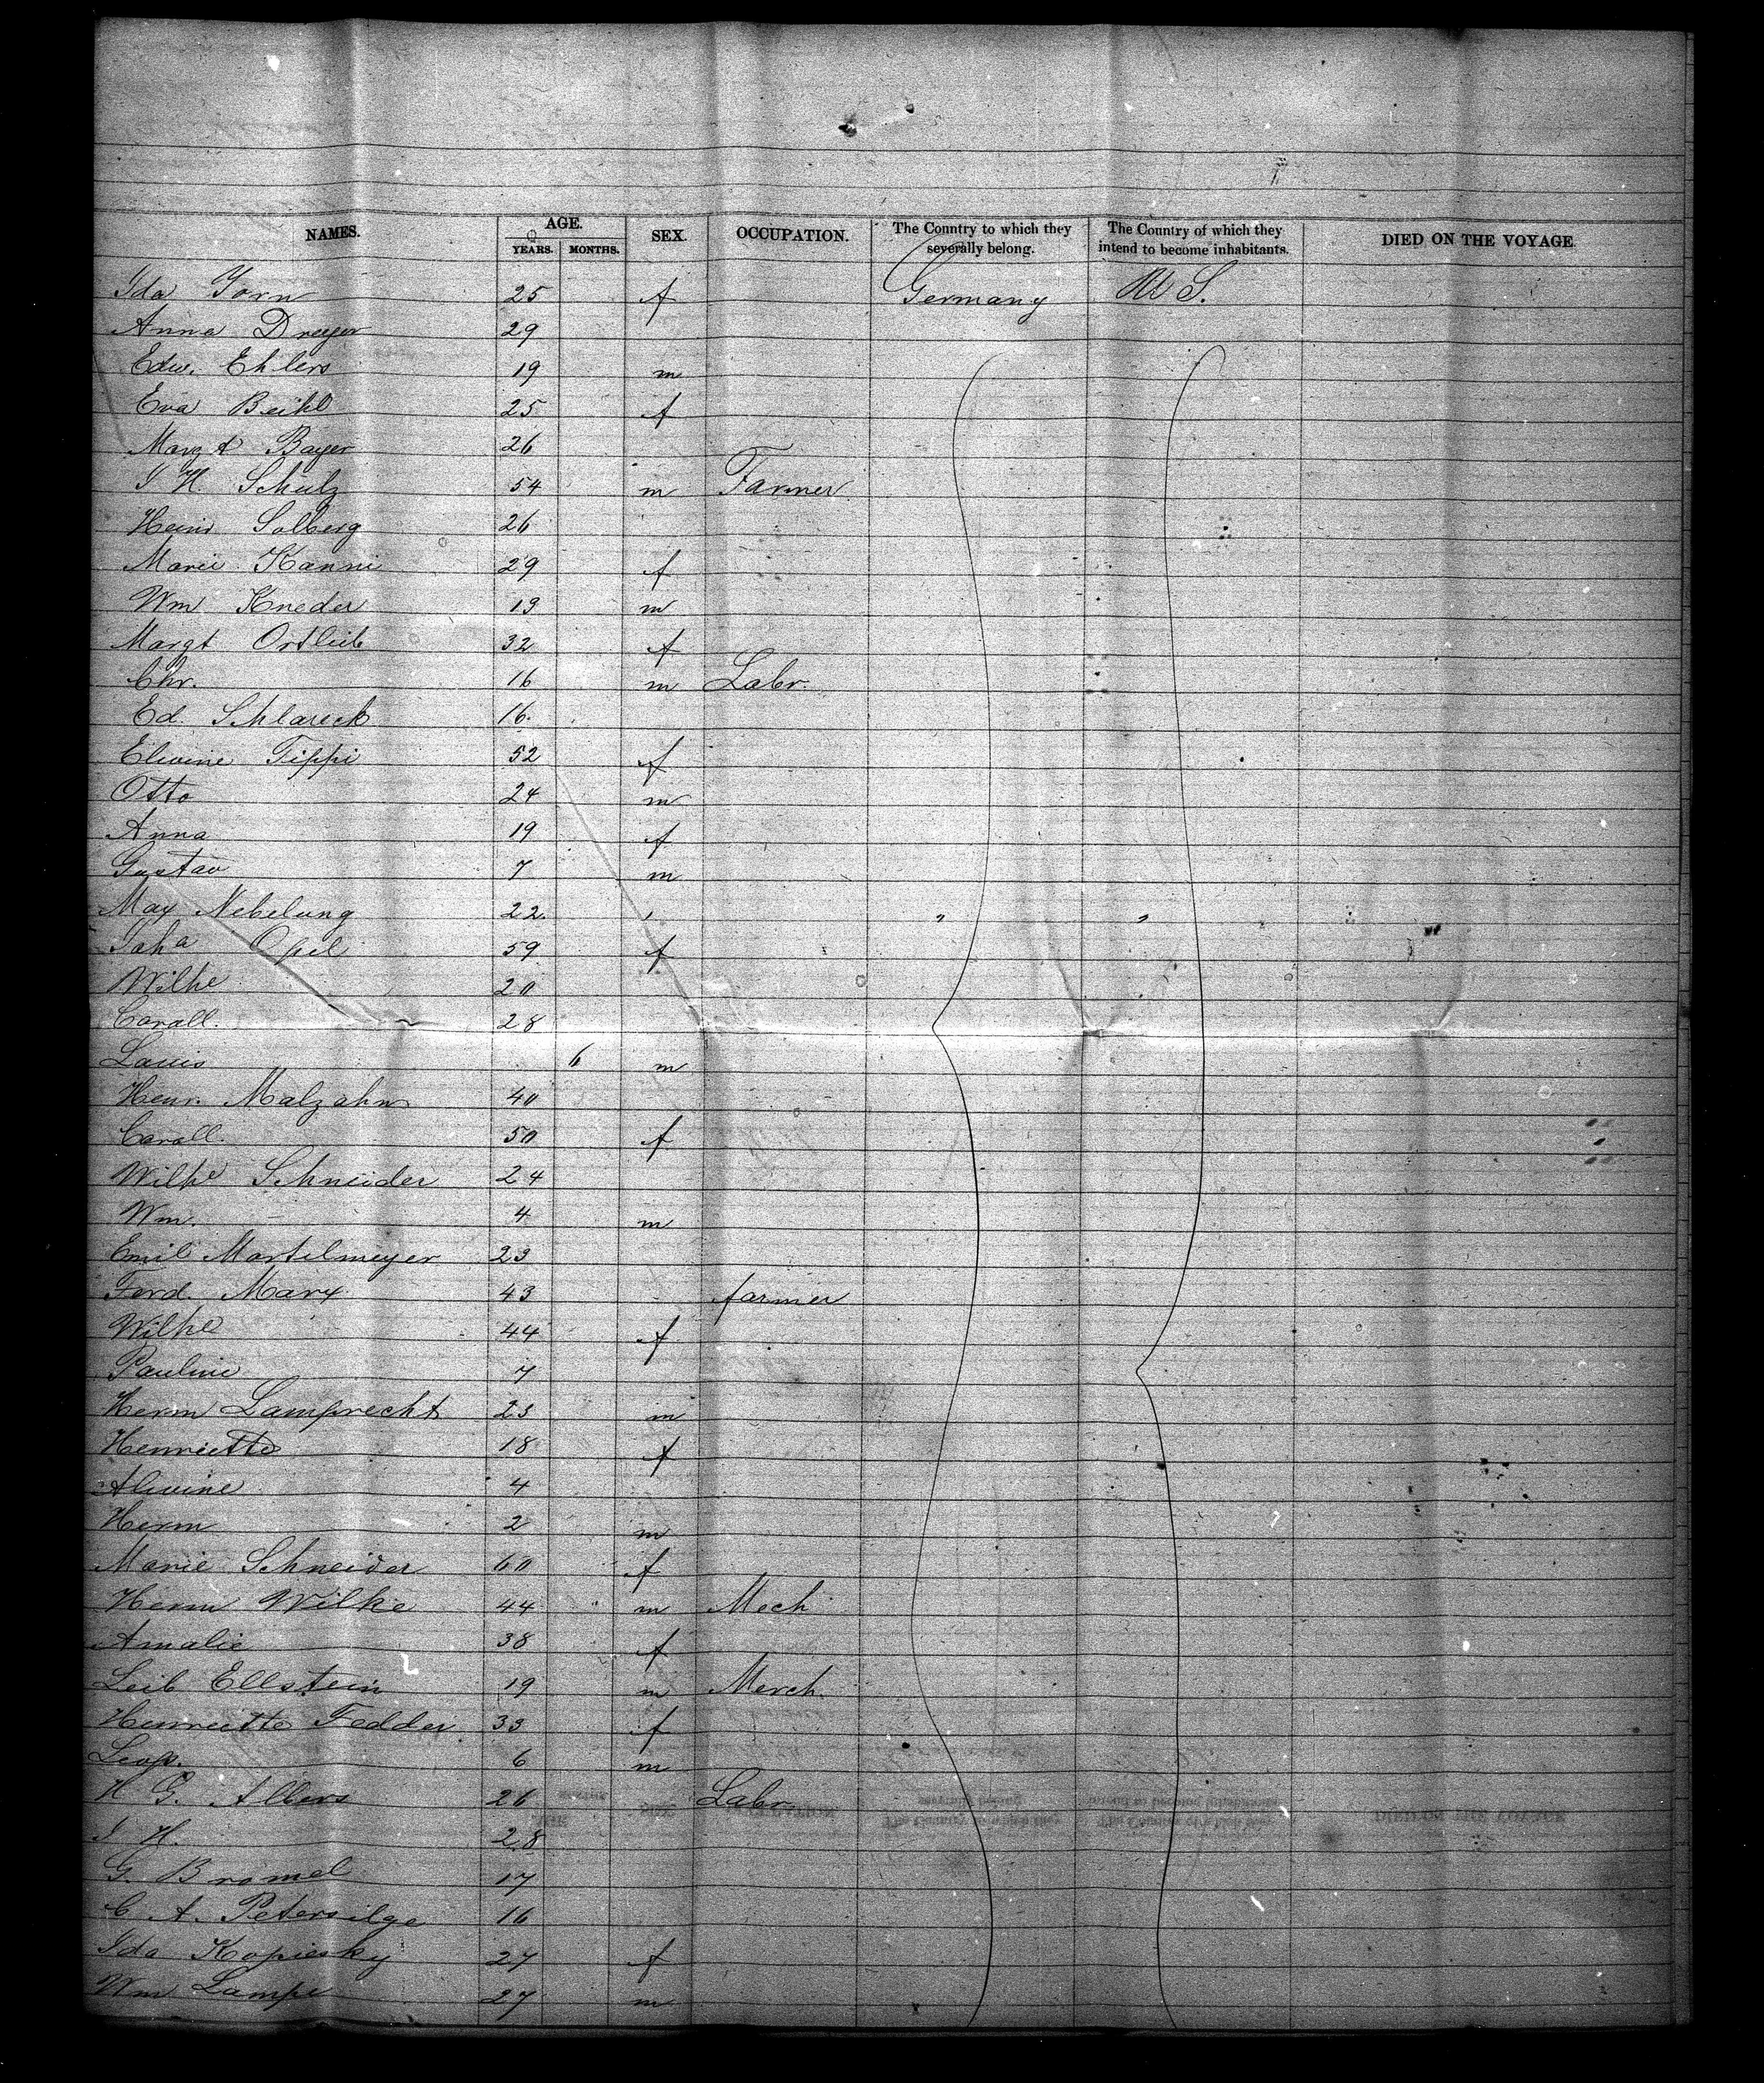 NAMES. AGE. YEARS. MONTHS. SEX. OCCUPATION. The Country to which they severally belong. The Country of which they intend to become inhabitants. DIED ON THE VOYAGE.
Ida Yorn 25 f Germany U S.
Anna Dreyer 29
Edw. Ehlers 19 m
Eva Beihl 25 f
Margt Bayer 26
J H. Schulz 54 m Farmer
Heinr Solberg 26
Marie Kanni 29 f
Wm Kneder 19 m
Margt Ortleib 32 f
Chr. 16 m Labr.
Ed. Schlareck 16.
Elwine Tippi 52 f
Otto 24 m
Anna 19 f
Gustav 7 m
Max Nebelung 22. " " "
Joha Opel 59 f
Wilhe 20
Caroll. 28
Louis 6 m
Henr. Malzahn 40
Caroll. 50 f
Wilhe Schneider 24
Wm. 4 m
Emil Martelmeyer 23
Ferd. Marx 43 farmer
Wilhe 44 f
Pauline 7
Herm Lamprecht 23 m
Henriette 18 f
Alwine 4
Herm 2 m
Marie Schneider 60 f
Herm Wilke 44 m Mech
Amalie 38 f
Leib Ellstein 19 m Merch.
Henriette Fedder 33 f
Leop. 6 m
H G. Albers 26 Labr
J H. 28
G. Bromel 17
C A. Petersilge 16
Ida Kopiesky 27 f
Wm Lampe 27 m